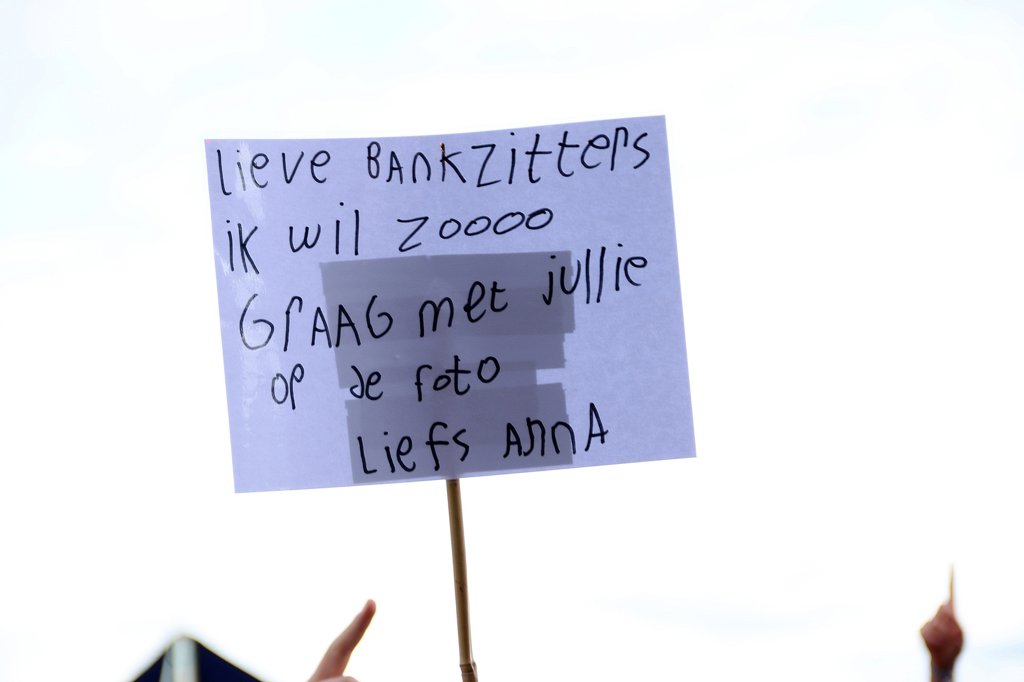 Lieve BANKZitters
ik wil zoooo
GrAAG met jullie
op de foto
Liefs AnnA